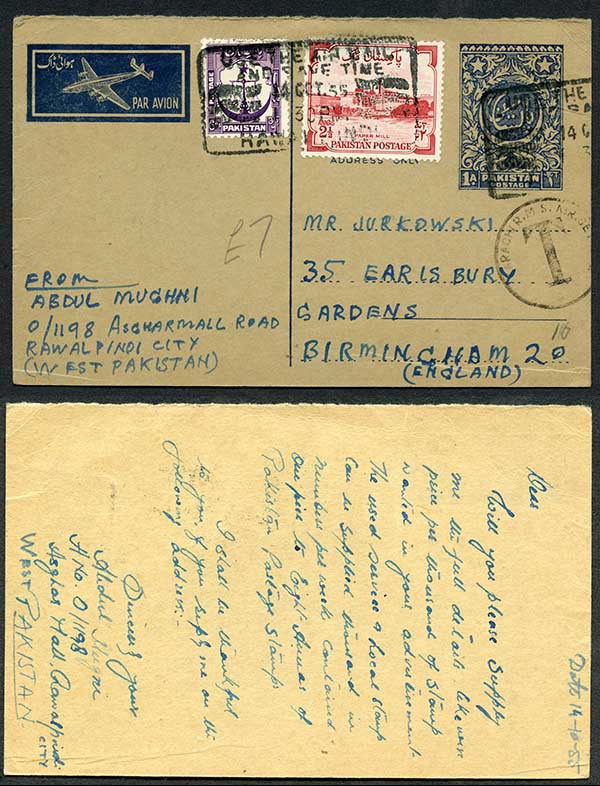 ہوائی ڈاک
PAR AVION
پاکستان
PAKISTAN
پاکستان پوسٹیج
2½ As
PAPER MILL
PAKISTAN POSTAGE
THE AIR MAIL
AND SAVE TIME
14 OCT. 55
1A PAKISTAN
POSTAGE
THE
14 OC
ADDRESS ONLY
R.M.S. AIR
T
£7
MR. JURKOWSKI
35 EARISBURY
GARDENS
16
BIRMINGHAM 20
(ENGLAND)
FROM
ABDUL MUGHNI
O/1198 ASGHARMALL ROAD
RAWALPINDI CITY
(WEST PAKISTAN)
Date 14-10-55
Dear
Will you please supply
me the full details likewise
price per thousand of stamp
wanted in your advertisement
The used service & Local stamp
can be supplied thousand in
numbers per week contained
One pice to Eight Annas of
Pakistan Postage Stamps
I shall be thankful
to you, if you reply me on the
following address:-
Sincerely yours
Abdul Mugni
H No. O/1198
Asghar Mall, Rawalpindi
CITY
WEST PAKISTAN